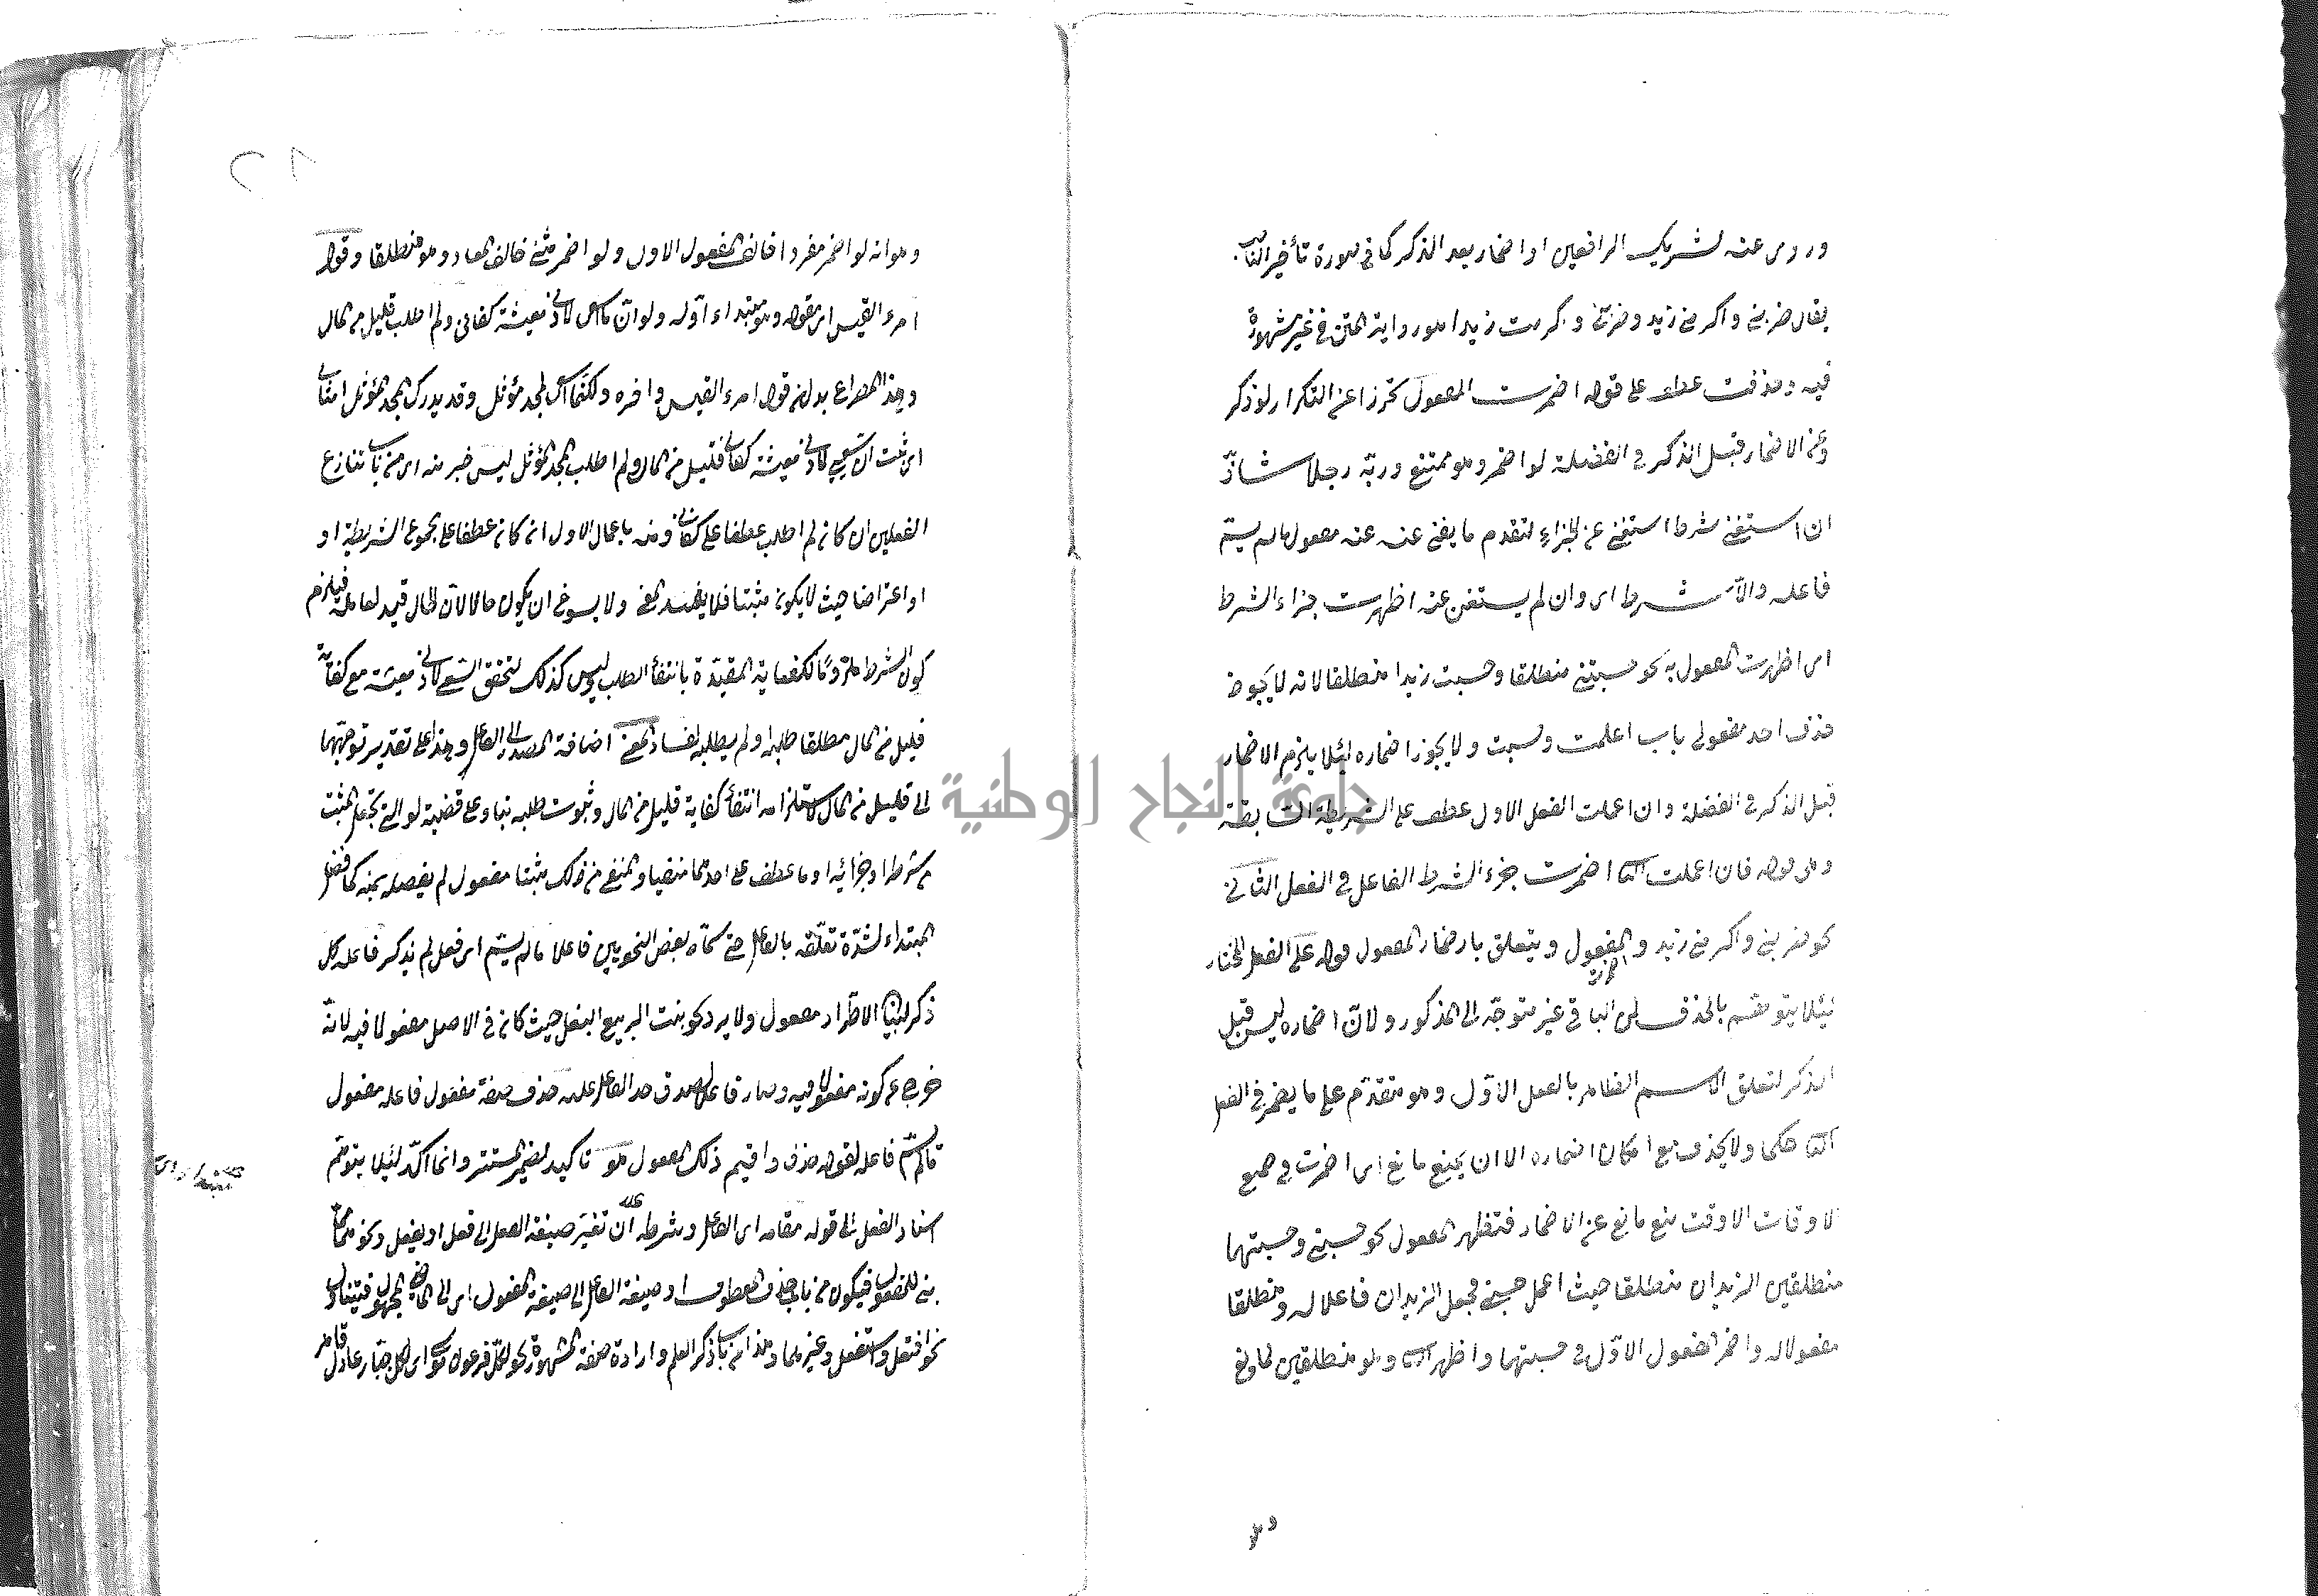 وروى عنه تشريك الرافعين او اضمار بعد الذكر كما في صورة تأخير الناصب
يقال ضربني واكرمني زيد وضربني واكرمت زيدا هو رواية المتن غير مشهورة
فيه وحذفت عطف على قوله اضمرت المفعول تحرزا عن التكرار لو ذكر
وعن الاضمار قبل الذكر في الفضلة لو اضمر وهو ممتنع وربّه رجلا شاذّ
ان استغنى شرط استغنى عن الجزاء لتقدم ما يغني عنه عنه مفعول ما لم يسمّ
فاعله والّا شرط اى وان لم يستغن عنه اظهرت جزاء الشرط
اى اظهرت المفعول به نحو حسبني منطلقا وحسبت زيدا منطلقا لانه لا يجوز
حذف احد مفعولي باب اعلمت وحسبت ولا يجوز اضماره لئلا يلزم الاضمار
قبل الذكر في الفضلة وان اعملت الفعل الاول عطف على الشرطية السابقة
وهى قوله فان اعملت الثاني اضمرت جزء الشرط الفاعل في الفعل الثاني
نحو ضربني واكرمني زيد والمفعول ويتعلق باضمار المفعول قوله على الفعل المختار
لئلا يتوهم بالحذف انّ الباقي غير متوجّه الى المذكور ولانّ اضماره ليس قبل
الذكر لتعلق الاسم الظاهر بالفعل الاوّل وهو متقدّم على ما يضمر في الفعل
الثاني حكما ولا يحذف مع امكان اضماره الا ان يمنع مانع اى اضمرت في جميع
الاوقات الا وقت منع مانع عن الاضمار فتظهر المفعول نحو حسبني وحسبتهما
منطلقين الزيدان منطلقا حيث اعمل حسبني فجعل الزيدان فاعلا له ومنطلقا
مفعولا له واضمر المفعول الاوّل في حسبتهما واظهر الثاني وهو منطلقين لمانع
وهو انه لو اضمر مفردا خالف المفعول الاول ولو اضمر مثنى خالف المعاد وهو منطلقا وقول
امرء القيس اى مقوله وهو مبتداء اوّله ولو انّ ما اسعى لادنى معيشة كفاني ولم اطلب قليل من المال
وهذا المصراع بدل من قول امرء القيس واخره ولكنّما اسعى لمجد مؤثل وقد يدرك المجد المؤثل امثالي
اى ثبت ان سعيي لادنى معيشة كفاني قليل من المال ولم اطلب المجد المؤثل ليس خبر منه اى من باب تنازع
الفعلين ان كان لم اطلب عطفا على كفاني ومنه باعمال الاول ان كان عطفا على مجموع الشرطية او
او اعتراضا حيث لا يكون مثبتا فلا يفسد المعنى ولا يسوغ ان يكون حالا لان الحال قيد لعامله فيلزم
كون الشرط ملزوما للكفاية المقيّدة بانتفاء الطلب وليس كذلك لتحقق السعي لادنى معيشة مع كفاية
قليل من المال مطلقا طلبه او لم يطلبه لفساد المعنى اضافة المصدر الى الفاعل وهذا على تقدير توجّهما
الى قليل من المال لاستلزامه انتفاء كفاية قليل من المال وثبوت طلبه بناء على قضية لو التي تجعل المثبت
من شرطه او جزائه او ما عطف على احدهما منفيا والمنفي من ذلك مثبتا مفعول لم يفصله بمنه كما فصل
المبتداء لشدّة تعلّقه بالفاعل حتى سمّاه بعض النحويين فاعلا ما لم يسمّ اى فعل لم يذكر فاعله كل
ذكر الاطّراد مفعول ولا يرد نحو انبت الربيع البقل حيث كان في الاصل مفعولا فيه لانه
خرج عن كونه مفعولا فيه وصار فاعلا لصدق حد الفاعل عليه حذف صفة مفعول فاعله مفعول
ما لم يسمّ فاعله لقوله حذف واقيم ذلك المفعول هو تأكيد لضمير المستتر وانما اكّد لئلا يتوهّم
اسناد الفعل الى قوله مقامه اى الفاعل وشرطه ان تغيّر صيغة الفعل الى فعل او يفعل ونحو ممّا
بني للمفعول فيكون من باب حذف المعطوف او صيغة الفاعل الى صيغة المفعول اى الى الماضي المجهول فيتناول
نحو افتعل واستفعل وغيرهما وهذا من باب ذكر العلم وارادة صفته المشهورة نحو لكلّ فرعون موسى اى لكل جبّار عادل قاهر
جامعة النجاح الوطنية